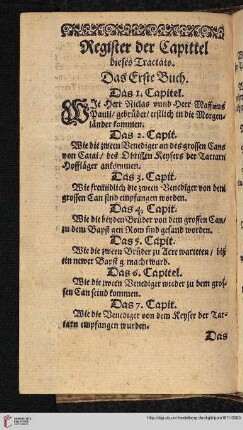 Register der Capittel
dieses Tractats.
Das Erste Buch.
Das 1. Capitel.
Wie Herr Niclas vnnd Herr Maffaeus
Pauli/ gebrüder/ erstlich in die Morgen-
länder kommen.
Das 2. Capit.
Wie die zween Venediger an des grossen Cans
von Catai/ des Obristen Keysers der Tartarn
Hoffläger ankommen.
Das 3. Capit.
Wie freundtlich die zween Venediger von dem
grossen Can sind empfangen worden.
Das 4. Capit.
Wie die beyden Brüder von dem grossen Can/
zu dem Bapst gen Rom sind gesand worden.
Das 5. Capit.
Wie die zween Brüder zu Acre warteten/ biß
ein newer Bapst gemacht ward.
Das 6. Capitel.
Wie die zween Venediger wieder zu dem gros-
sen Can seind kommen.
Das 7. Capit.
Wie die Venediger von dem Keyser der Tar-
tarn empfangen wurden.
Das